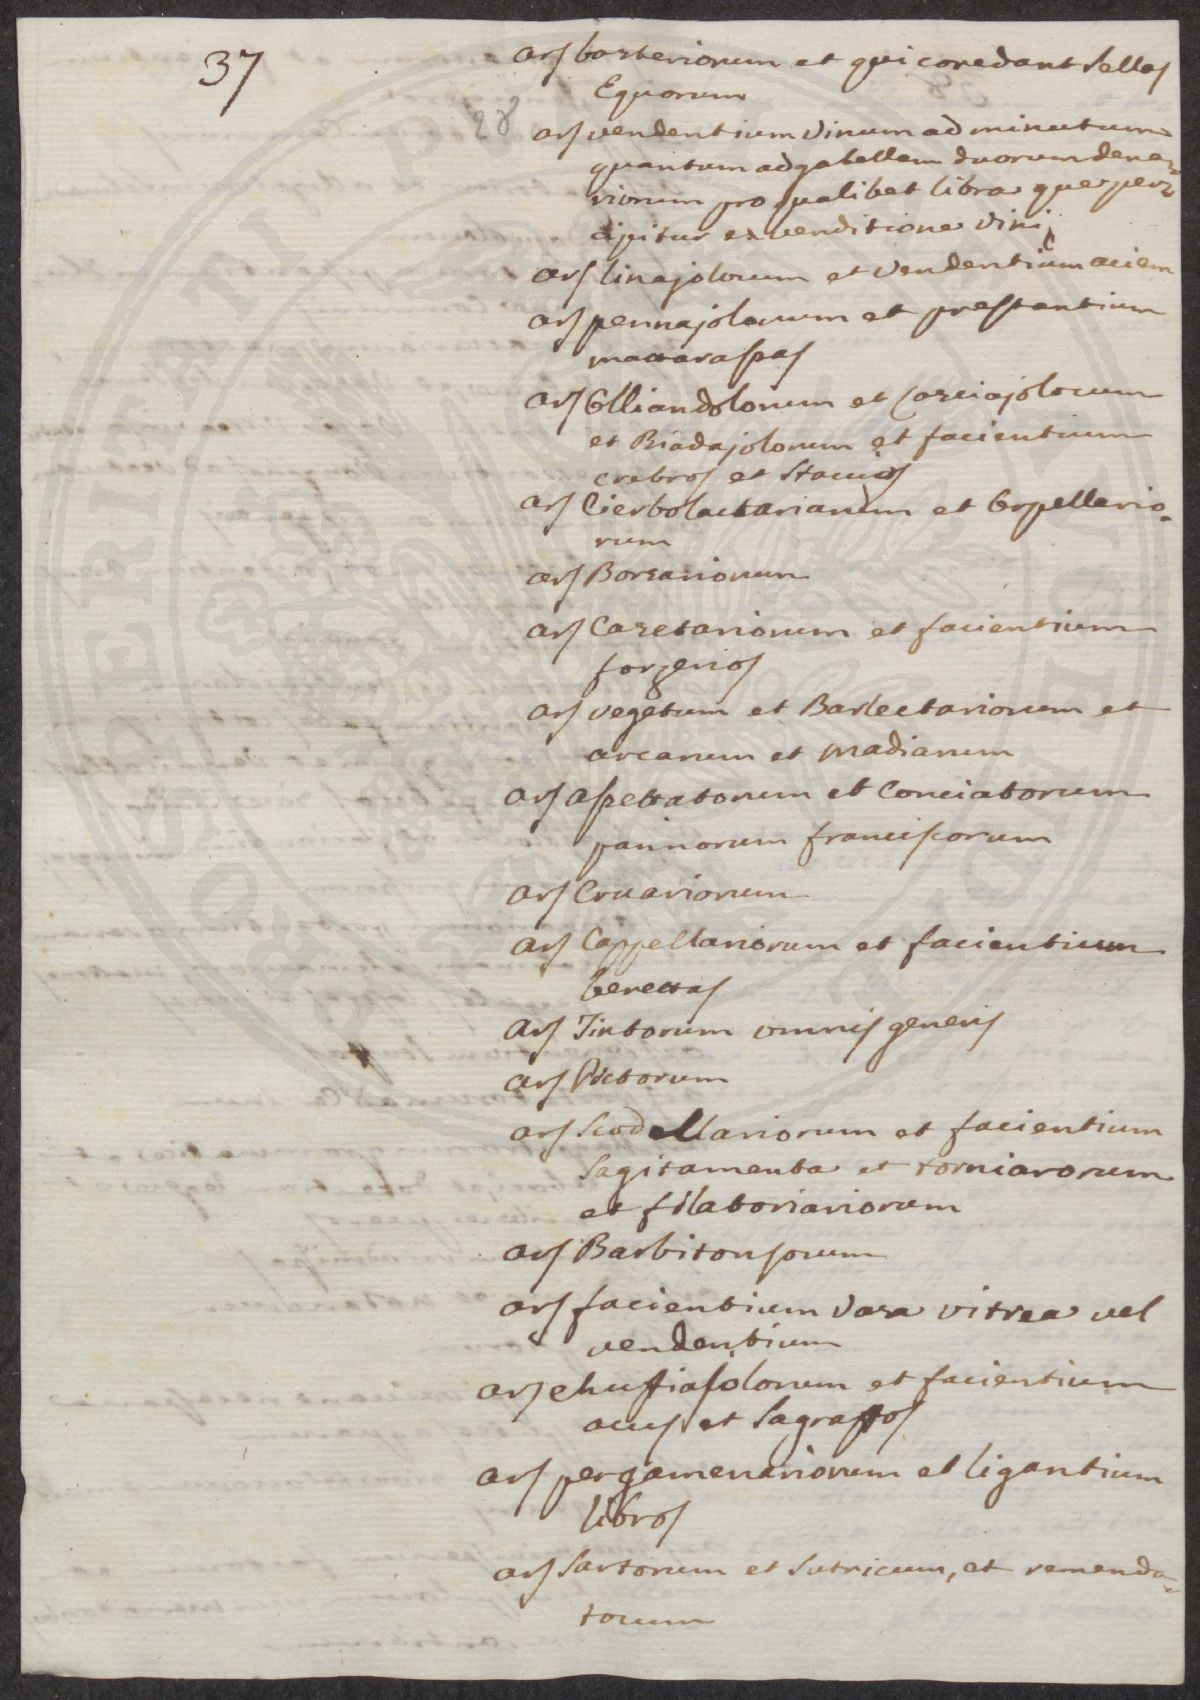 37
ars basteriorum et qui coredant sellas
Equorum
28
ars vendentium vinum ad minutum
quantum ad gabellam duorum dena=
riorum pro qualibet libra que per=
cipitur ex venditione vini
ars linajolorum et vendentium aciem
ars pennajolorum et prestantium
mataraspas
ars Olliandolorum et Casciajolorum
et Biadajolorum et facientium
crebros et stacios
ars Cierbolattariarum et Orpellario=
rum
ars Borsariorum
ars Casetariorum et facientium
forzerios
ars vegetum et Barlectariorum et
arcarum et madiarum
ars aspettatorum et Conciatorum
pannorum franciscorum
ars Covariorum
ars Cappellariorum et facientium
berettas
ars Tintorum omnis generis
ars Pictorum
ars Scodellariorum et facientium
sagitamenta et torniarorum
et filatoriariorum
ars Barbitonsorum
ars facientium Vasa vitrea vel
vendentium
ars chuffiasolorum et facientium
acus et sagraffos
ars pergamenariorum et ligantium
libros
ars sartorum et sutricum, et remenda=
torum